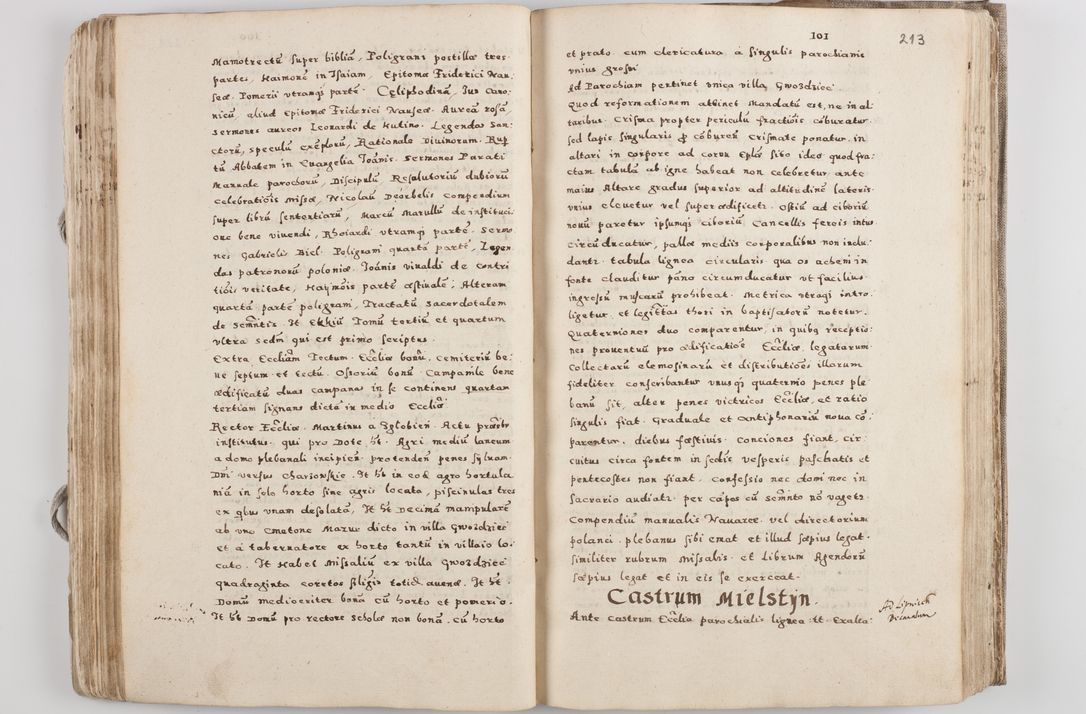 Mamotrectū super bibliā, Poligrani postillæ tres
partes, Haimonē in Isaiam, Epitomæ Friderici Nau:
seæ. Pomerii utramq; partē. Cęliphodinā, Jus Cano:
nicū, aliud epitomæ Friderici Nauseæ. Aureā rosā,
sermones aureos Leonardi de Hutino. Legendas San:
ctorū, speculū exēplorū, Rationale Divinorum. Rup
tū Abbatem in Evangelia Joānis. sermones Parati
Manuale parochorū, Discipulū Resolutoriū dubiorū
celebratiōis missæ, Nicolaū Deorbelis compendium
super librū sententiarū, Marcū Marullū de instituci:
one bene vivendi, Rhoiardi utramq; partē. Sermo
nes Gabrielis Biel. Poligrani quartā partē, Legen
das patronorū poloniæ. Joānis vivaldi de contri
tiōis veritate, Haymōis partē æstivalē, Alteram
quartā partē poligrani, Tractatū sacerdotalem
de Semntis. It Ekkiū Tomū tertiū et quartum
ultra sedm qui est primo scriptus.
Extra Eccliam Tectum. Eccliæ bonū, cemiteriū be:
ne septum et tectū. Ossoriū bonū. Campanile bene
ædificatū duas campanas in se continens quartam
tertiam signans dictā in medio Eccliæ
Rector Eccliæ. Martinus a Zglobień. Actu prœsbr
institutus. qui pro Dote ht. Agri mediū laneum
a domo plebanali incipień. protenden̄ penes sylvam
Dn̄i versus Charzowskie. It ht in eod agro hortula
niā in solo horto sine agris locata, piscinulas tres
ex qbus unam desolatā, It ht Decimā manipularē
ab uno Cmetone Mazur dicto in villa Gwozdziec
et a tabernatore ex horto tantū in villaio lo:
cato. It Habet Missaliū ex villa Gwozdziec
quadraginta coretos siliġis totid avenæ. It ht
Domū mediocriter bonā cū horto et pomerio.
It ht Domū pro rectore Scholæ non bonā. cū horto
101
213
et prato. cum clericatura a singulis parochianis
unius grossi
Ad Parochiam pertinet unica villa Gwozdziec
Quod reformationem attinet Mandatū est, ne in al
taribus. Crisma propter periculū fractiōis cōburatur
sed lapis singularis ꝓ cōburen̄ Crismate ponatur. in
altari in corpore ad cornu Eplæ sito ideo quod fra:
ctam tabulā ab igne habeat non celebretur. ante
maius Altare gradus superior ad altitudinē lateris
unius elevetur vel superædificetr. Ostiū ad ciboriū
novū paretur ipsumq; ciboriū Cancellis ferreis intus
circūducatur, pallæ mediis corporalibus non inclu:
dantr. tabula lignea circularis qua os achem in
fonte clauditur pāno circumducatur ut facilius
ingressū muscarū prohibeat. Metrica utraq; intro:
ligetur. et legittas thori in baptisatorū notetur.
Quaterniones duo comparentur, in quibq receptio:
nes proventuū pro ædificatiōe Eccliæ. legatarum
Collectarū elemosinarū et distributiōes illarum
fideliter conscribantur unusq; quaternio penes ple
banū sit, alter penes victricos Eccliæ, et ratio
singulis fiat. Graduale et Antiphonariū nova cō:
parentur, diebus fæstivis. conciones fiant, cir:
cuitus circa fontem in sedis vesperis paschatis et
pentecostes non fiant. confessio nec domi nec in
sacrario audiatr. per cāpos cū Semnto nō vagetr.
Compendiū manualis Navarræ. vel directorium
polanci. plebanus sibi emat et illud sæpius legat.
similiter rubrum Missalis. et Librum Agendorū
sæpius legat et in eis se exerceat.
Castrum Mielstÿn.
Ante castrum Ecclia parochialis lignea tt. Exalta:
Ad Lipnicen
Decanatum